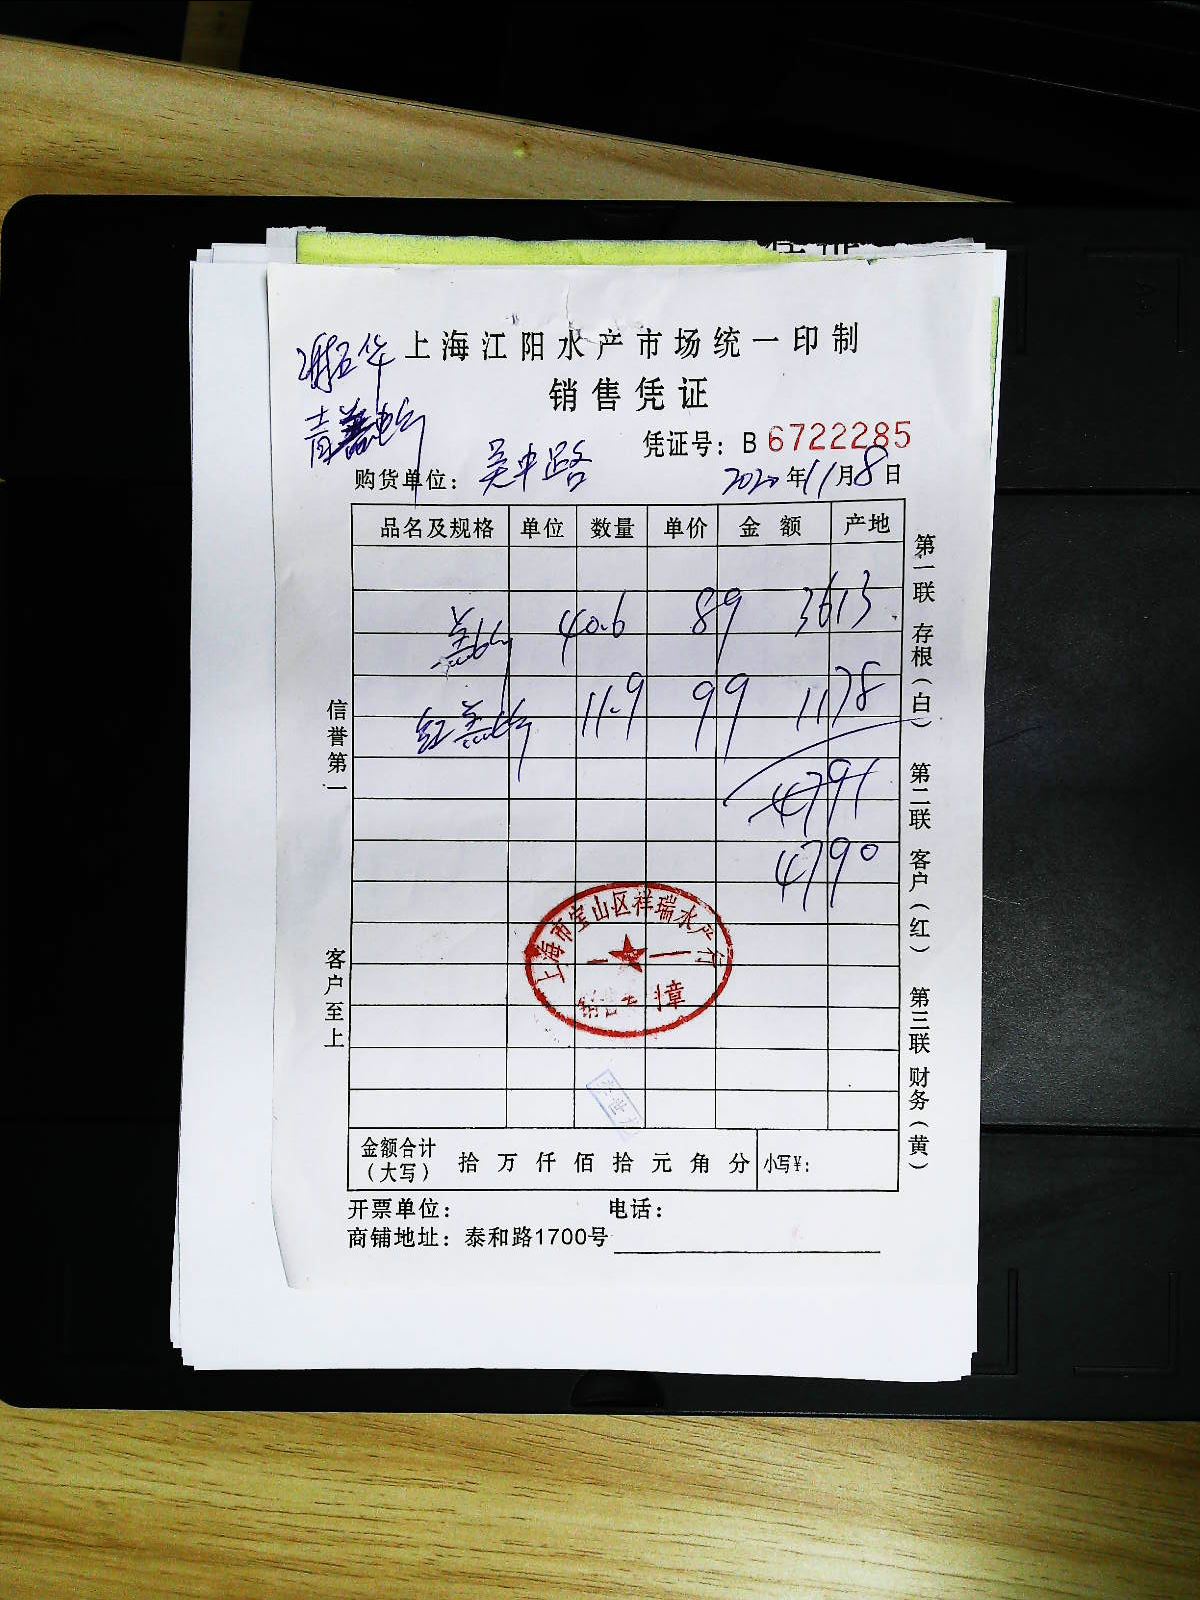 上海江阳水产市场统一印制
销售凭证
凭证号：B 6722285
购货单位：吴中路 2020年11月8日
品名及规格 单位 数量 单价 金额 产地
40.6 89 3613
红 11.9 99 1178
4791
4790
信誉第一
客户至上
第一联 存根（白） 第二联 客户（红） 第三联 财务（黄）
上海市宝山区祥瑞水产行
金额合计（大写） 拾 万 仟 佰 拾 元 角 分 小写¥：
开票单位： 电话：
商铺地址：泰和路1700号